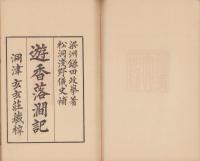 梁洲鎌田政擧著
松洞淺野儀史補
遊香落澗記
洞津 玄玄莊藏梓